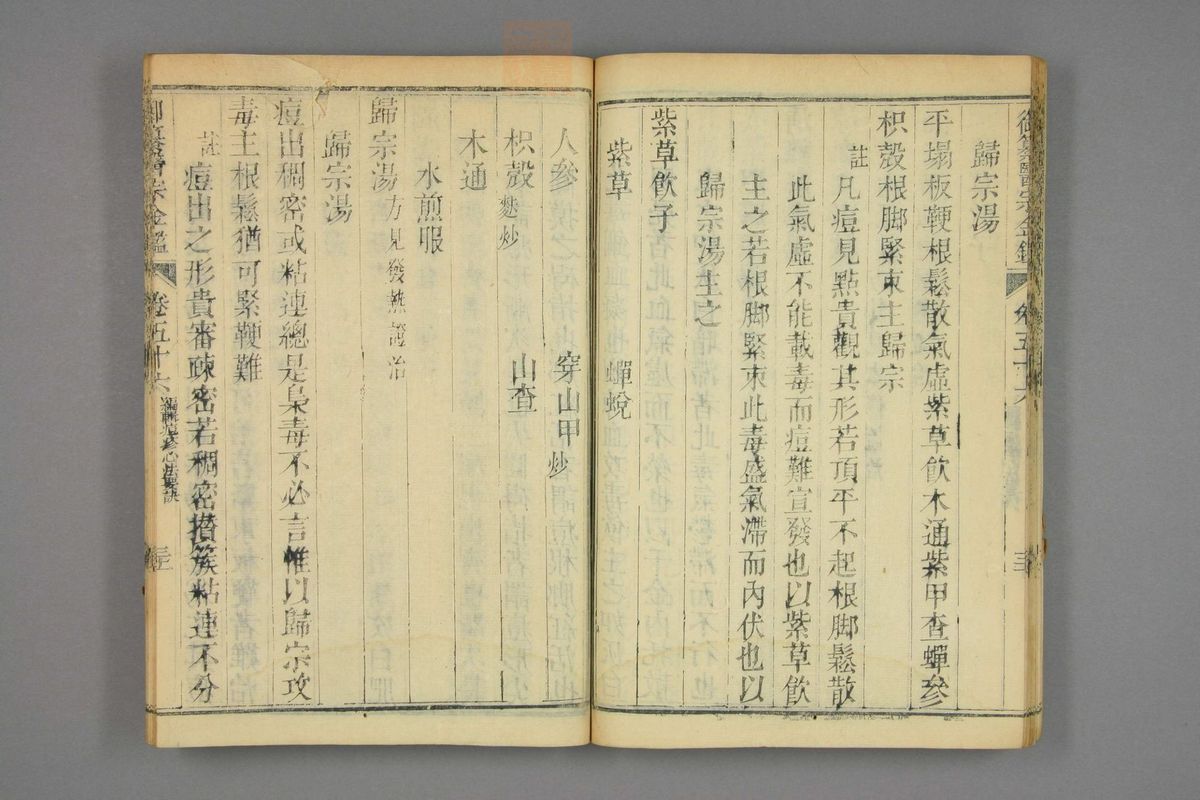 御纂醫宗金鑑 卷五十六
歸宗湯
平塌板鞕根鬆散氣虛紫草飲木通紫甲查蟬參
枳殼根脚緊束主歸宗
註 凡痘見點貴觀其形若頂平不起根脚鬆散
此氣虛不能載毒而痘難宣發也以紫草飲
主之若根脚緊束此毒盛氣滯而內伏也以
歸宗湯主之
紫草飲子
紫草 蟬蛻
人參 穿山甲炒
枳殼麩炒 山查
木通
水煎服
歸宗湯方見發熱證治
歸宗湯
痘出稠密或粘連總是梟毒不必言惟以歸宗攻
毒主根鬆猶可緊鞕難
註 痘出之形貴審疎密若稠密攢簇粘連不分
御纂醫宗金鑑 卷五十六 編輯痘疹心法要訣